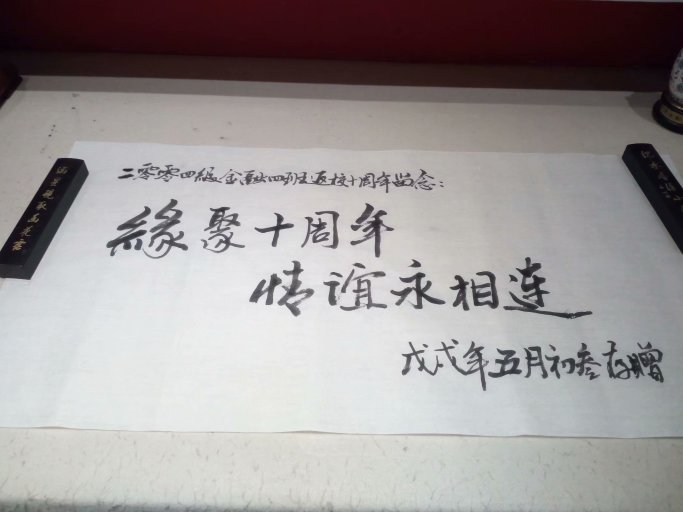 二零零四级金融四班返校十周年留念：
緣聚十周年
情谊永相连
戊戌年五月初叁存贈